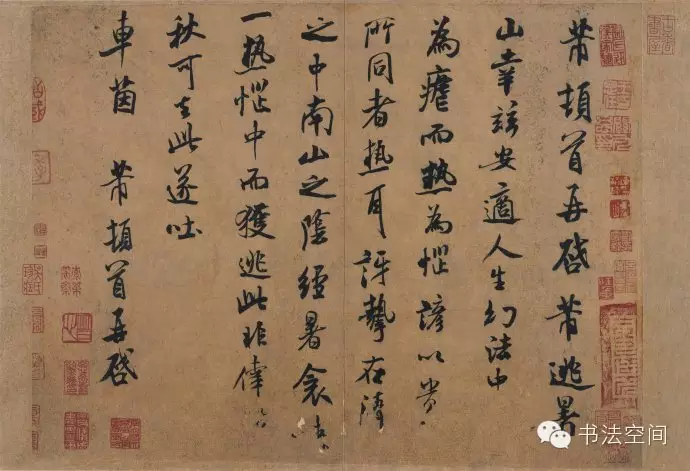 芾頓首再啓芾逃暑
山幸茲安適人生幻法中
為瘧而熱為惱諺以貴
所同者熱耳訝摯在清
之中南山之陰經暑衾
一熱惱中而獲逃此非倖
秋可去此遂吐
車茵　芾頓首再啓
书法空间